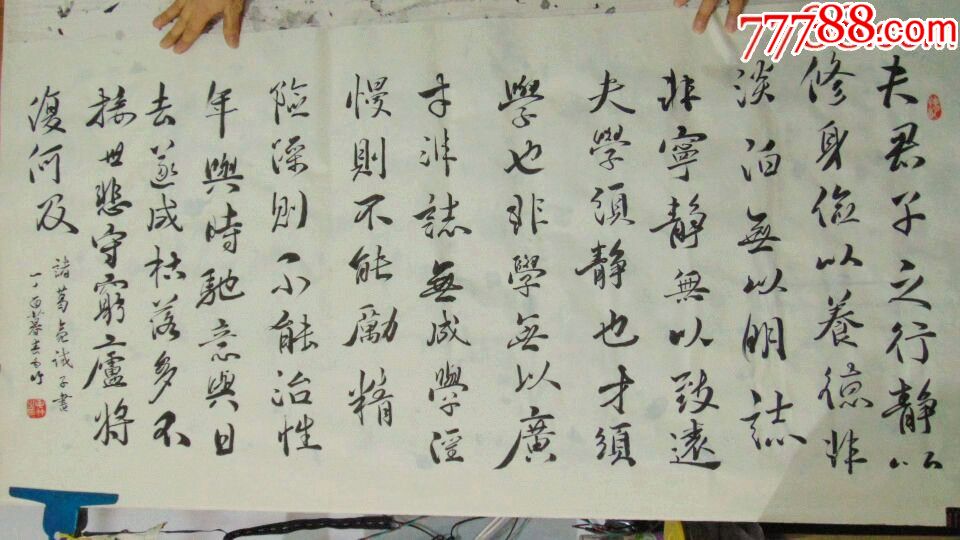 77788.com
夫君子之行静以
修身儉以養德非
淡泊無以明誌
非寧静無以致遠
夫學須静也才須
學也非學無以廣
才非誌無成學淫
慢則不能勵精
險躁則不能治性
年與時馳意與日
去遂成枯落多不
接世悲守窮廬將
復何及
諸葛亮诫子書
丁酉暮春